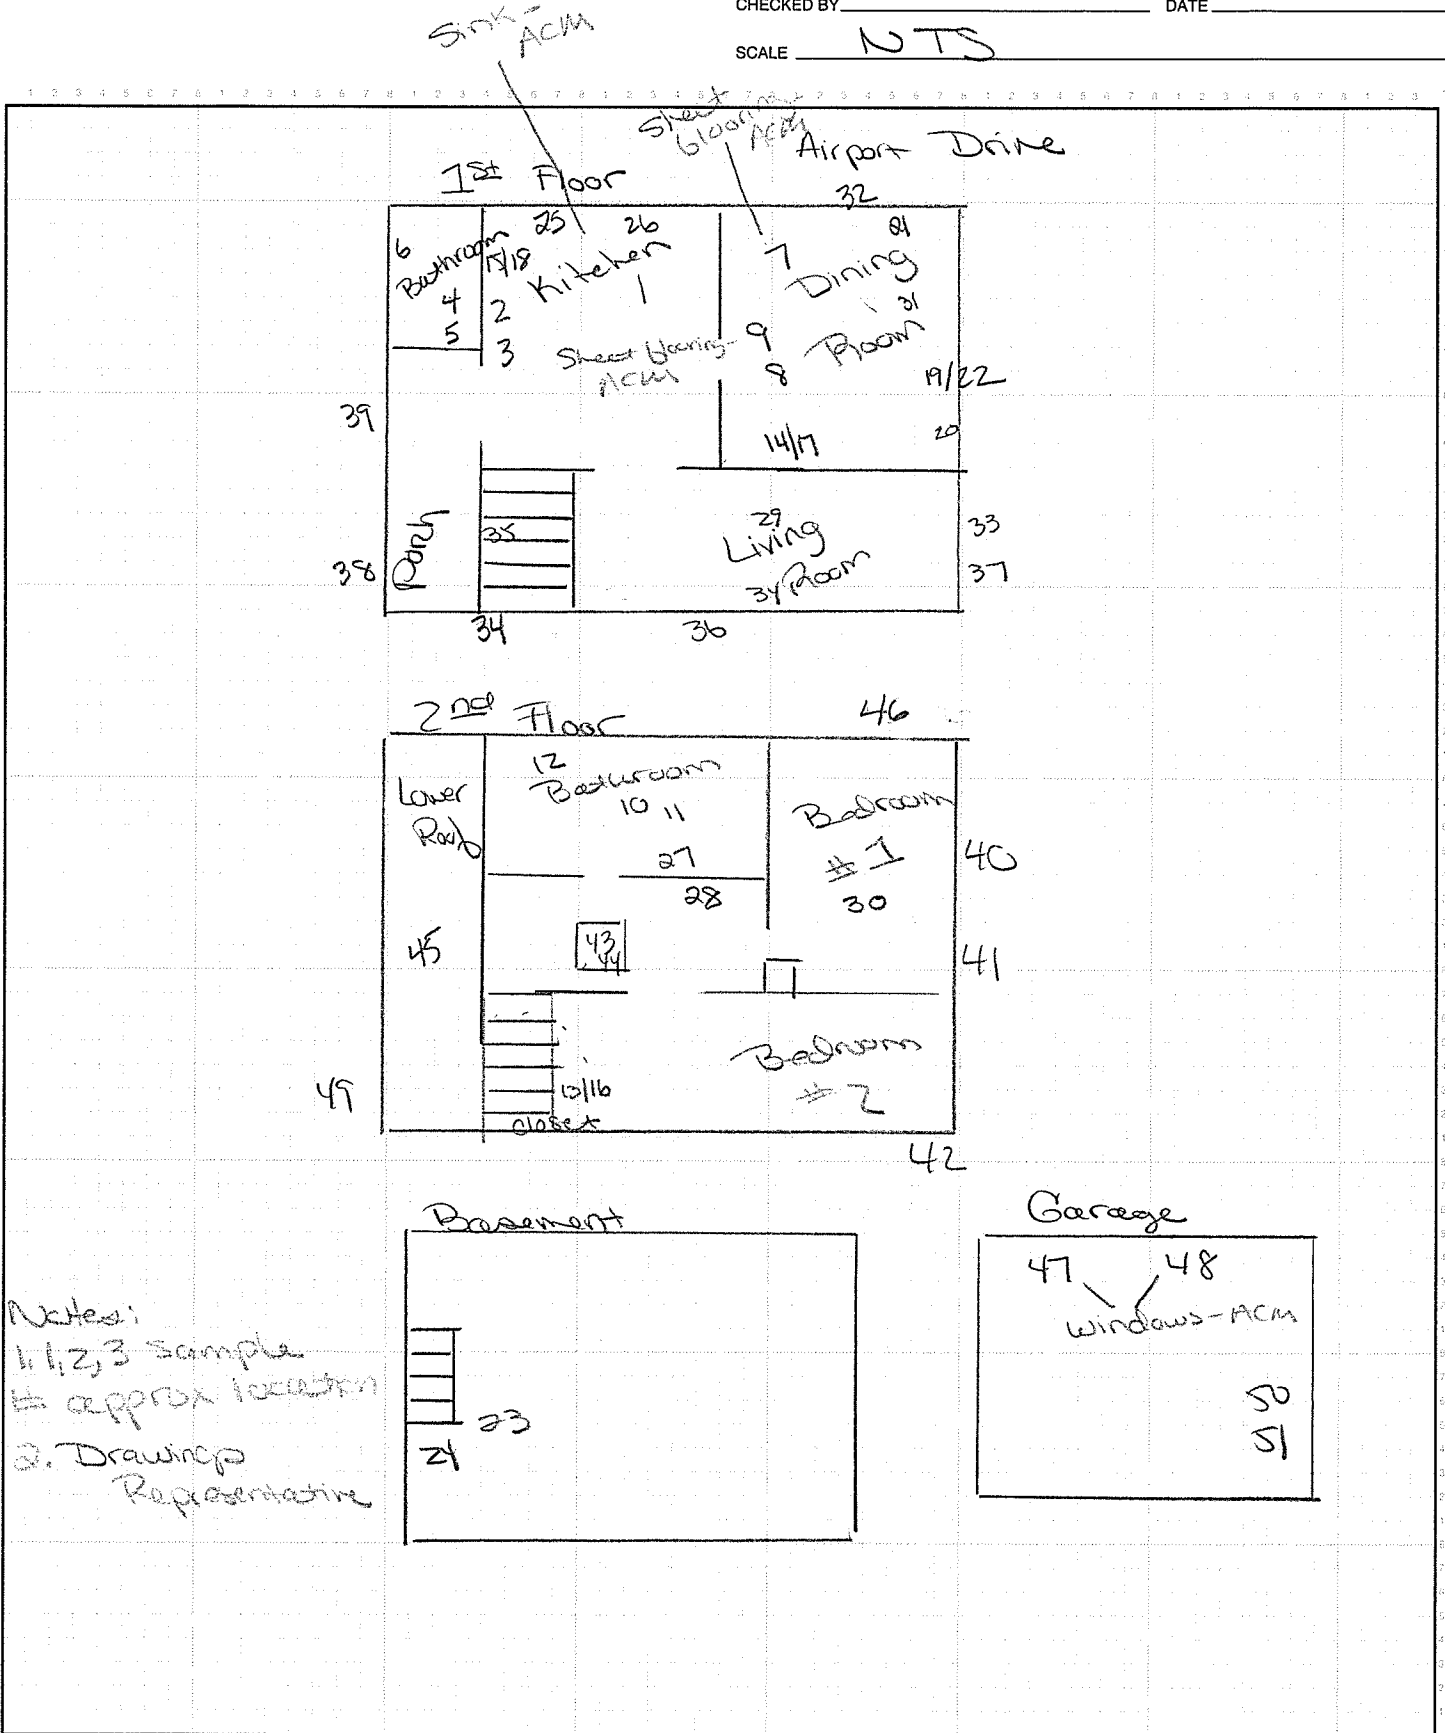 CHECKED BY DATE
SCALE NTS
Sink-
ACM
Sheet
flooring-
ACM
Airport Drive
1st Floor
32
6
Bathroom
4
5
25
26
15/18
Kitchen
1
2
3
Sheet flooring-
ACM
7
21
Dining
31
Room
9
8
19/22
14/17
20
39
38
Porch
35
29
Living
34 Room
33
37
34
36
2nd Floor
46
Lower
Roof
12
Bathroom
10 11
27
28
Bedroom
#1
30
40
45
43
44
41
49
13/16
closet
Bedroom
#2
42
Basement
23
24
Garage
47 48
Windows-ACM
50
51
Notes:
1. 1, 2, 3 Sample
# approx location
2. Drawings
Representative